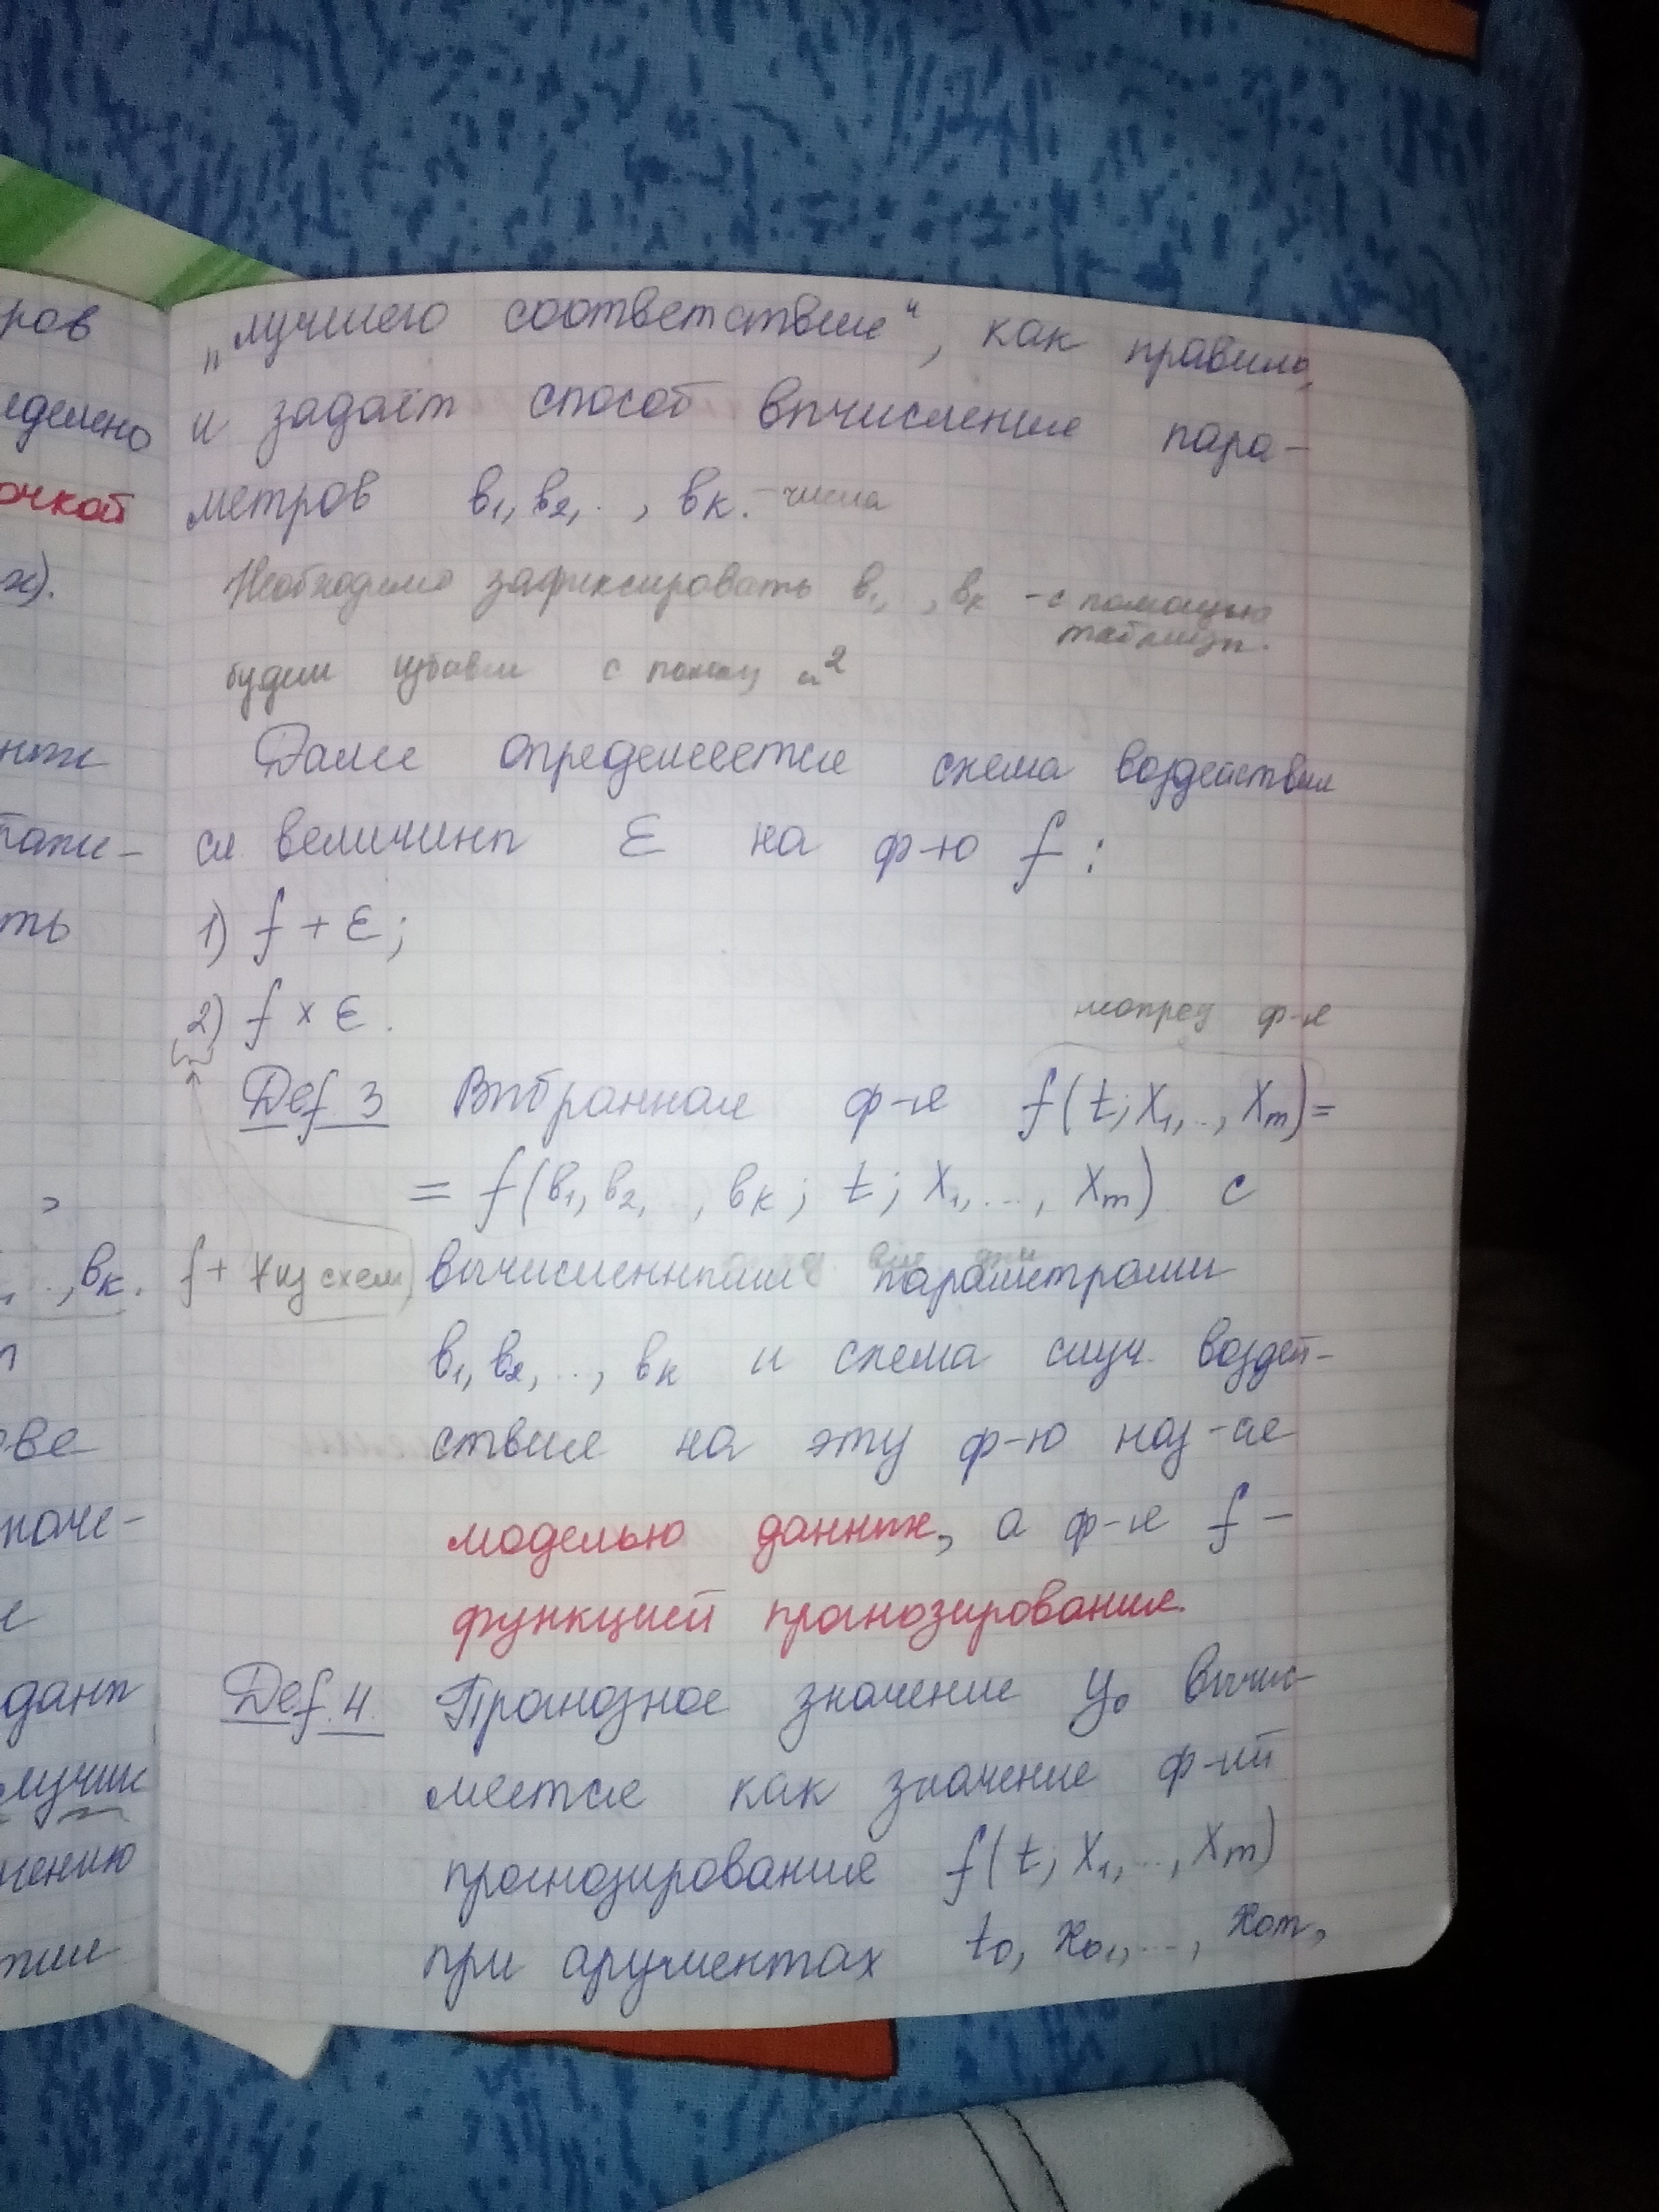 ров
еделено
очкой
х).
нти
тами-
ть
, .., вк.
ове
наче-
данн
лучш
чению
„лучшего соответствия“, как правило,
и задаёт способ вычисления пара-
метров в1, в2, .., вк. - числа
Необходимо зафиксировать в1, .., вк - с помощью
таблицы.
будем с помощ
Далее определяется схема воздействия
сл. величины ε на ф-ю f :
1) f + ε;
2) f x ε.
ф-я
Def 3 Выбранная ф-я f(t; X1, .., Xm) =
= f(в1, в2, .., вк; t; X1, ..., Xm) с
f + * из схем
вычисленными параметрами
в1, в2, .., вк и схема случ. воздей-
ствия на эту ф-ю наз-ся
моделью данных, а ф-я f –
функцией прогнозирования.
Def. 4. Прогнозное значение y0 вычис-
ляется как значение ф-ии
прогнозирования f(t; X1, .., Xm)
при аргументах t0, x01, ..., x0m,